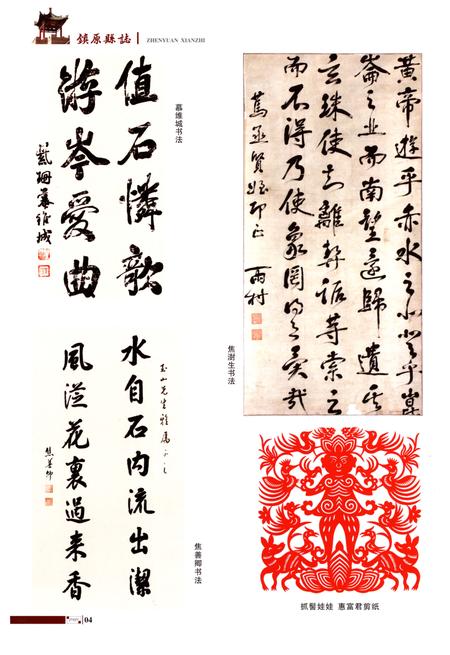 鎮原縣誌
ZHENYUAN XIANZHI
值石憐歌
游岑愛曲
慕維城
慕维城书法
黄帝遊乎赤水之北登乎崑
崙之丘而南望還歸遺其
玄珠使知離契詬等索之
而不得乃使象罔得之異哉
篤丞賢姪印正
雨村
焦澍生书法
玉山先生雅属
水自石内流出潔
風從花裏過来香
焦善卿
焦善卿书法
抓髻娃娃 惠富君剪纸
04